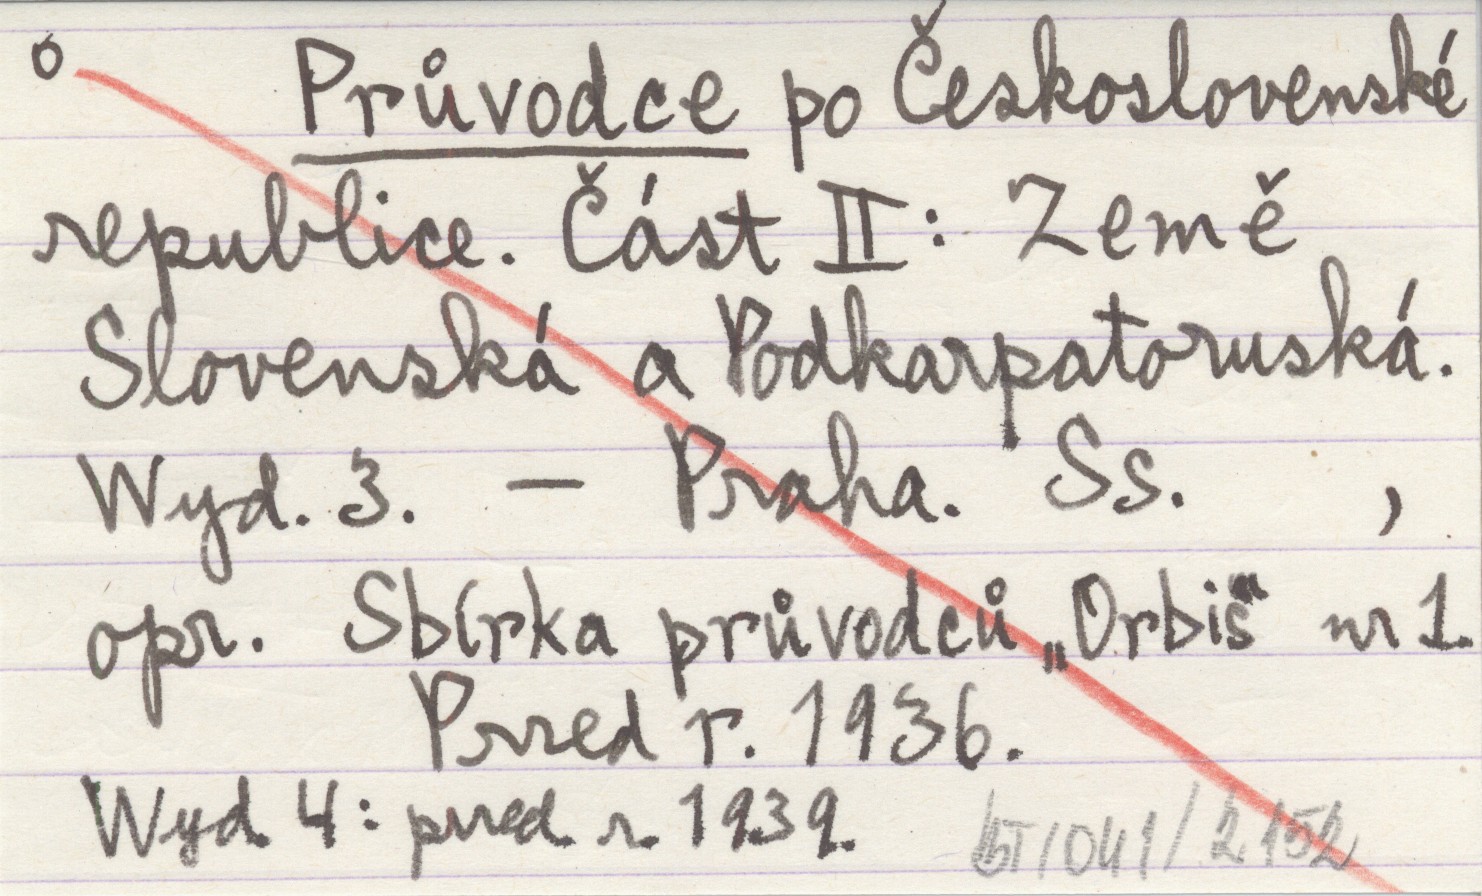 o Průvodce po Československé
republice. Část II: Země
Slovenská a Podkarpatoruská.
Wyd. 3. — Praha. Ss. ,
opr. Sbírka průvodců „Orbis“ nr 1.
Przed r. 1936.
Wyd 4: przed r. 1939.
/041/2152